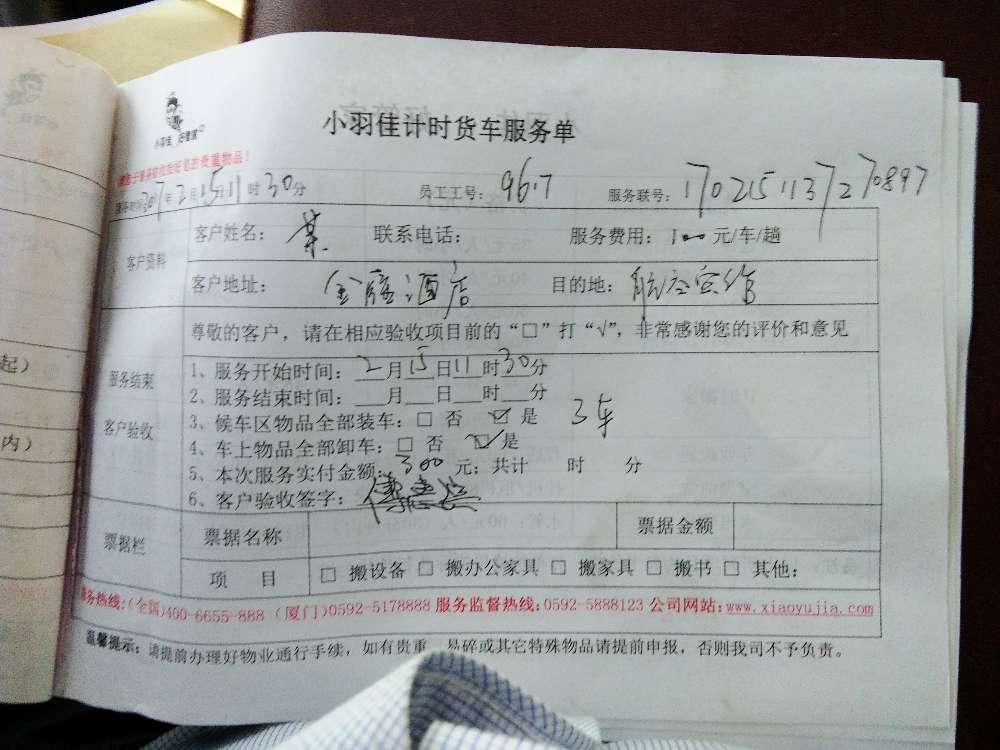 小羽佳计时货车服务单
服务时间:2017年2月15日11时30分 员工工号:9617 服务联号:1702151137270897
客户资料
客户姓名: 某 联系电话: 服务费用:100元/车/趟
客户地址: 酒店 目的地:
尊敬的客户,请在相应验收项目前的“□”打“√”,非常感谢您的评价和意见
服务结束
客户验收
1、服务开始时间:2月15日11时30分
2、服务结束时间:___月___日___时___分
3、候车区物品全部装车:□ 否 ☑ 是 3车
4、车上物品全部卸车:□ 否 ☑是
5、本次服务实付金额:300元;共计 时 分
6、客户验收签字:
票据栏
票据名称 票据金额
项 目 □ 搬设备 □ 搬办公家具 □ 搬家具 □ 搬书 □ 其他:
服务热线:(全国)400-6655-888 (厦门)0592-5178888 服务监督热线:0592-5888123 公司网站:www.xiaoyujia.com
温馨提示:请提前办理好物业通行手续,如有贵重、易碎或其它特殊物品请提前申报,否则我司不予负责。
起)
内)